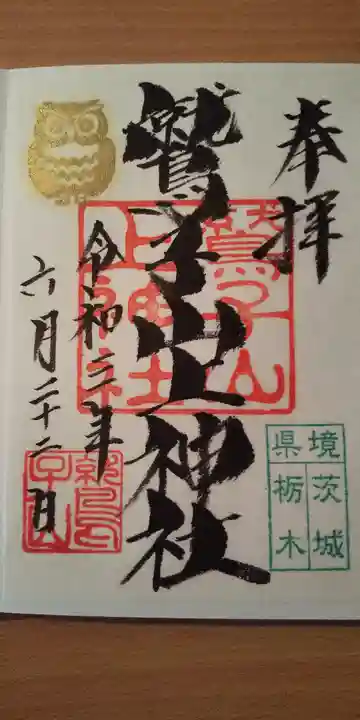 奉拝
鷲子山上神社
令和二年
六月二十二日
鷲子山
上神社
県境
茨城
栃木